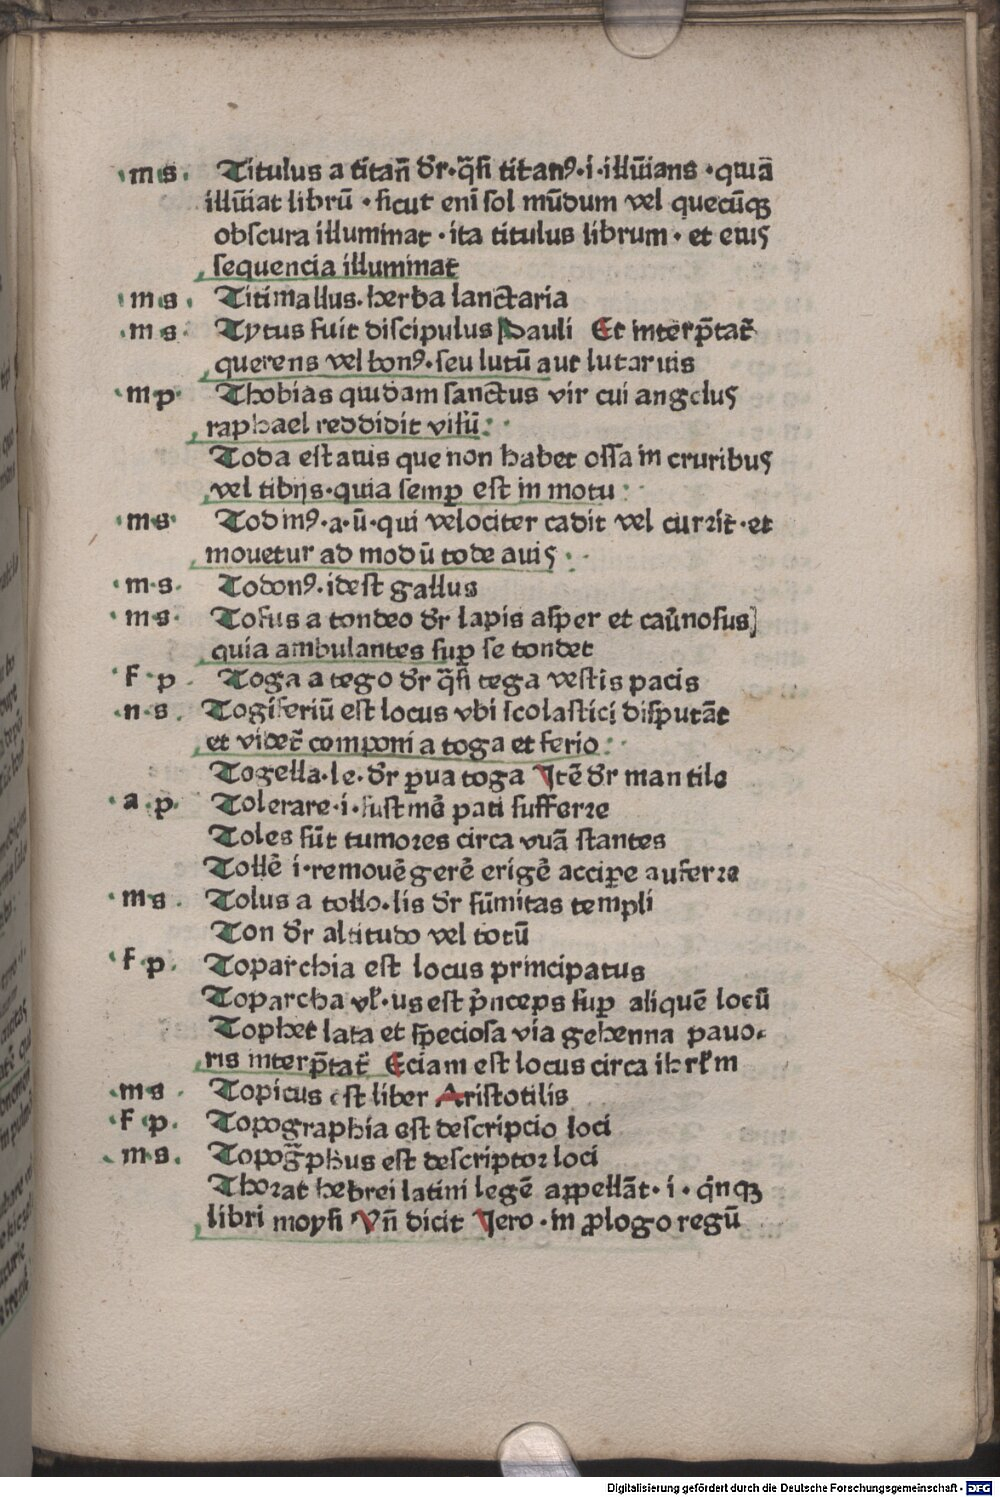 ·m·s· Titulus a titan̄ dr̄·q̄si titanꝰ·i·illūians ·quiā
illūiat librū · sicut eni sol mūdum vel quecūqꝫ
obscura illuminat · ita titulus librum · et eius
sequencia illuminat
·m·s· Titimallus·herba lanctaria
·m·s· Tytus fuit discipulus Pauli Et interp̄tat̄
querens vel bonꝰ·seu lutū aut lutarius
·m·p· Thobias quidam sanctus vir cui angelus
raphael reddidit visū:·
Toda est auis que non habet ossa in cruribus
vel tibijs·quia semꝑ est in motu:·
·m·s· Todinꝰ·a·ū·qui velociter cadit vel currit·et
mouetur ad modū tode auis:·
·m·s· Todonꝰ·idest gallus
·m·s· Tofus a tondeo dr̄ lapis asper et cau̅nosus]
quia ambulantes suꝑ se tondet
·f·p· Toga a tego dr̄ q̄si tega vestis pacis
·n·s· Togiferiū est locus vbi scolastici disputāt
et videt̄ componi a toga et ferio:·
Togella·le·dr̄ ꝑua toga Itē dr̄ mantile
·a·p· Tolerare·i·sustinē pati sufferre
Toles sūt tumores circa vuā stantes
Tollē i·remouē gerē erigē acciꝑe auferre
·m·s· Tolus a tollo·lis dr̄ sūmitas templi
Ton dr̄ altitudo vel totū
·f·p· Toparchia est locus principatus
Toparcha vl̄·us est p̄nceps suꝑ aliquē locū
Tophet lata et speciosa via gehenna pauo-
ris interp̄tat̄ Eciam est locus circa ihrl̄m
·m·s· Topicus est liber Aristotilis
·f·p· Topographia est descripcio loci
·m·s· Topoḡphus est descriptor loci
Thorat hebrei latini legē appellāt·i·q̄nqꝫ
libri moysi Vn̄ dicit Jero·in ꝓlogo regū
Digitalisierung gefördert durch die Deutsche Forschungsgemeinschaft - DFG